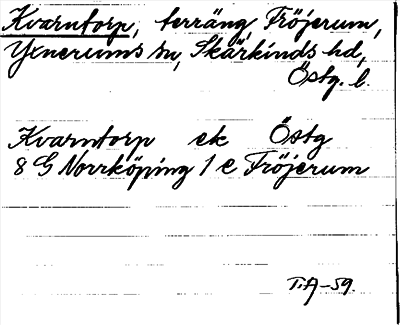 Kvarntorp, terräng, Fröjerum,
Yxnerums sn, Skärkinds hd,
Östg. l.
Kvarntorp ek Östg
8 G Norrköping 1 e Fröjerum
T.A-59.